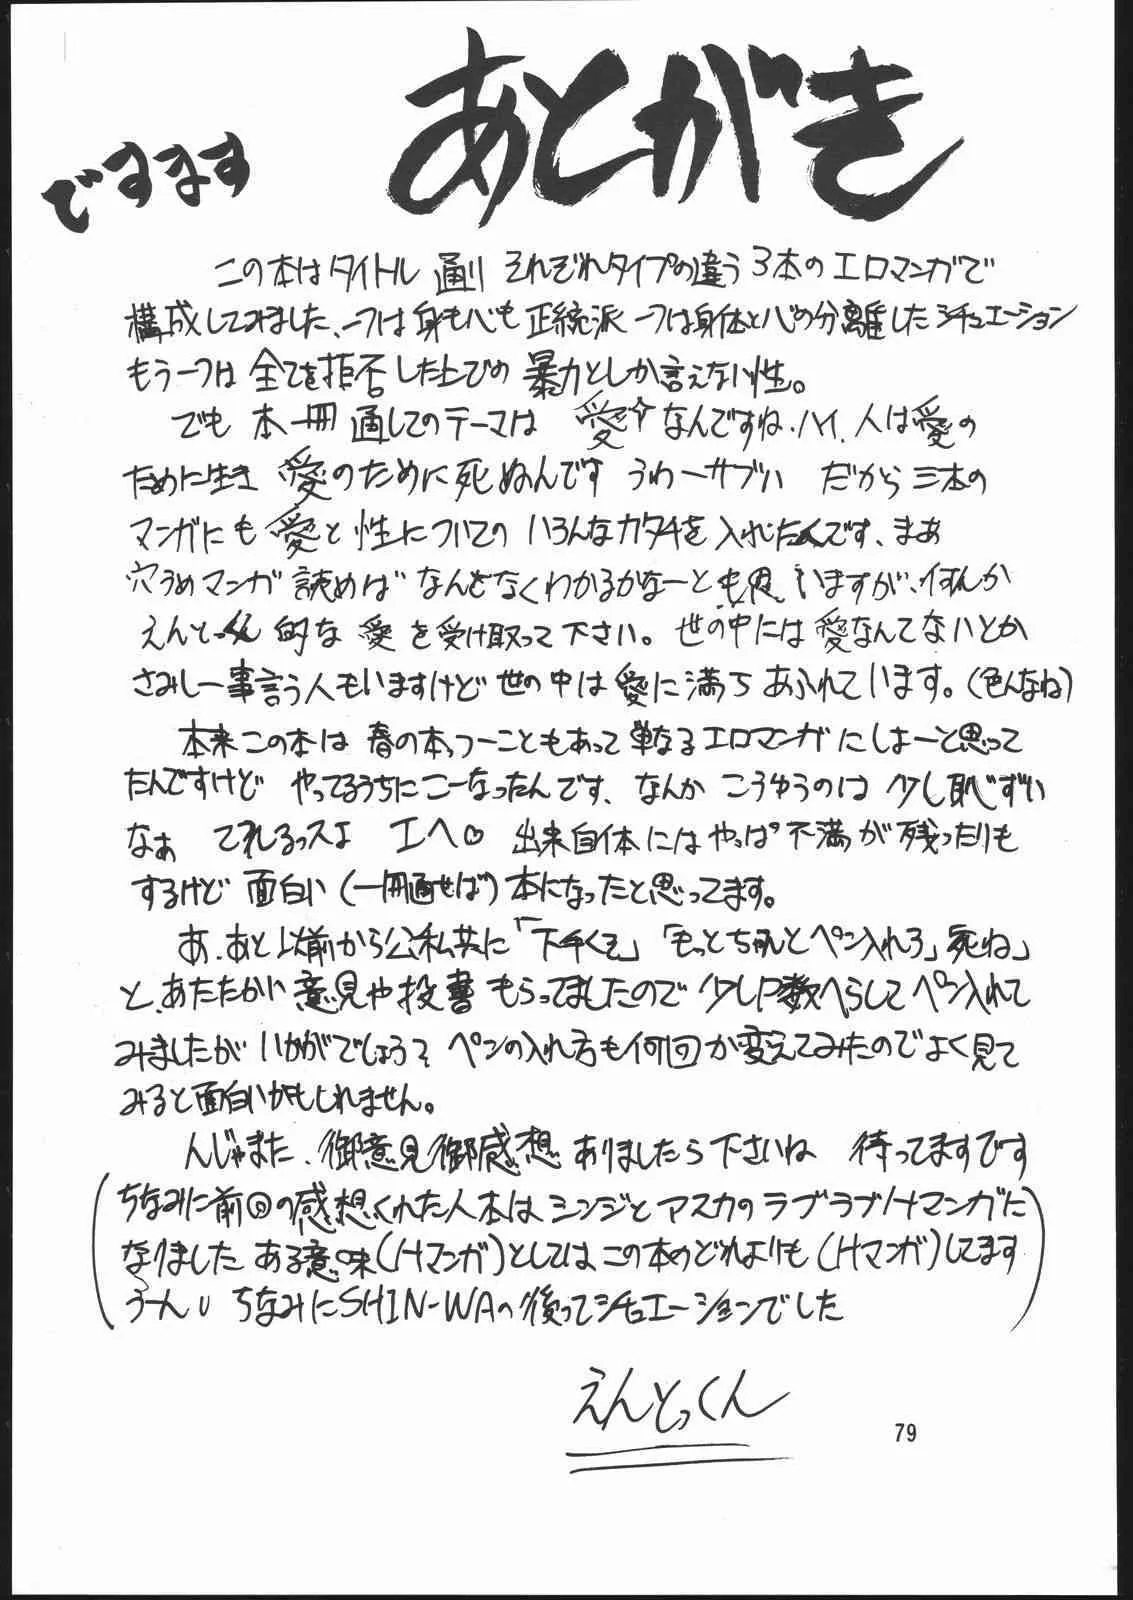 あとがき
ですます
この本はタイトル通り それぞれタイプの違う3本のエロマンガで
構成してみました、一つは身も心も正統派 一つは身体と心の分離したシチュエーション
もう一つは 全てを拒否した上での 暴力としか言えない性。
でも 本一冊 通してのテーマは 愛☆なんですね、ハイ、人は愛の
ために生き 愛のために死ぬんです うわーサブい だから三本の
マンガにも愛と性についての いろんなカタチを入れたんです、まあ
穴うめマンガ 読めば なんとなくわかるかなーとも思いますが、何んか
えんとっくん的な 愛を受け取って下さい。世の中には愛なんてないとか
さみしー事言う人もいますけど世の中は愛に満ちあふれています。(色んなね)
本来この本は 春の本っつーこともあって単なるエロマンガにしよーと思って
たんですけど やってるうちにこーなったんです、なんか こうゆうのは 少し恥ずい
なぁ てれるっスよ エへ♡ 出来自体にはやっぱ不満が残ったりも
するけど 面白い(一冊通せば)本になったと思ってます。
あ、あと以前から公私共に「下手くそ」「もっとちゃんとペン入れろ」死ね」
と、あたたかい意見や投書もらってましたので少しP数へらしてペン入れて
みましたが いかがでしょうか ペンの入れ方も何回か変えてみたのでよく見て
みると面白いかもしれません。
んじゃまた、御意見御感想ありましたら下さいね 待ってますです
(ちなみに前回の感想くれた人本はシンジとアスカのラブラブHマンガに
なりました ある意味(Hマンガ)としては、この本のどれよりも(Hマンガ)してます
うーん ちなみにSHIN-WAの後ってシチュエーションでした)
えんとっくん
79